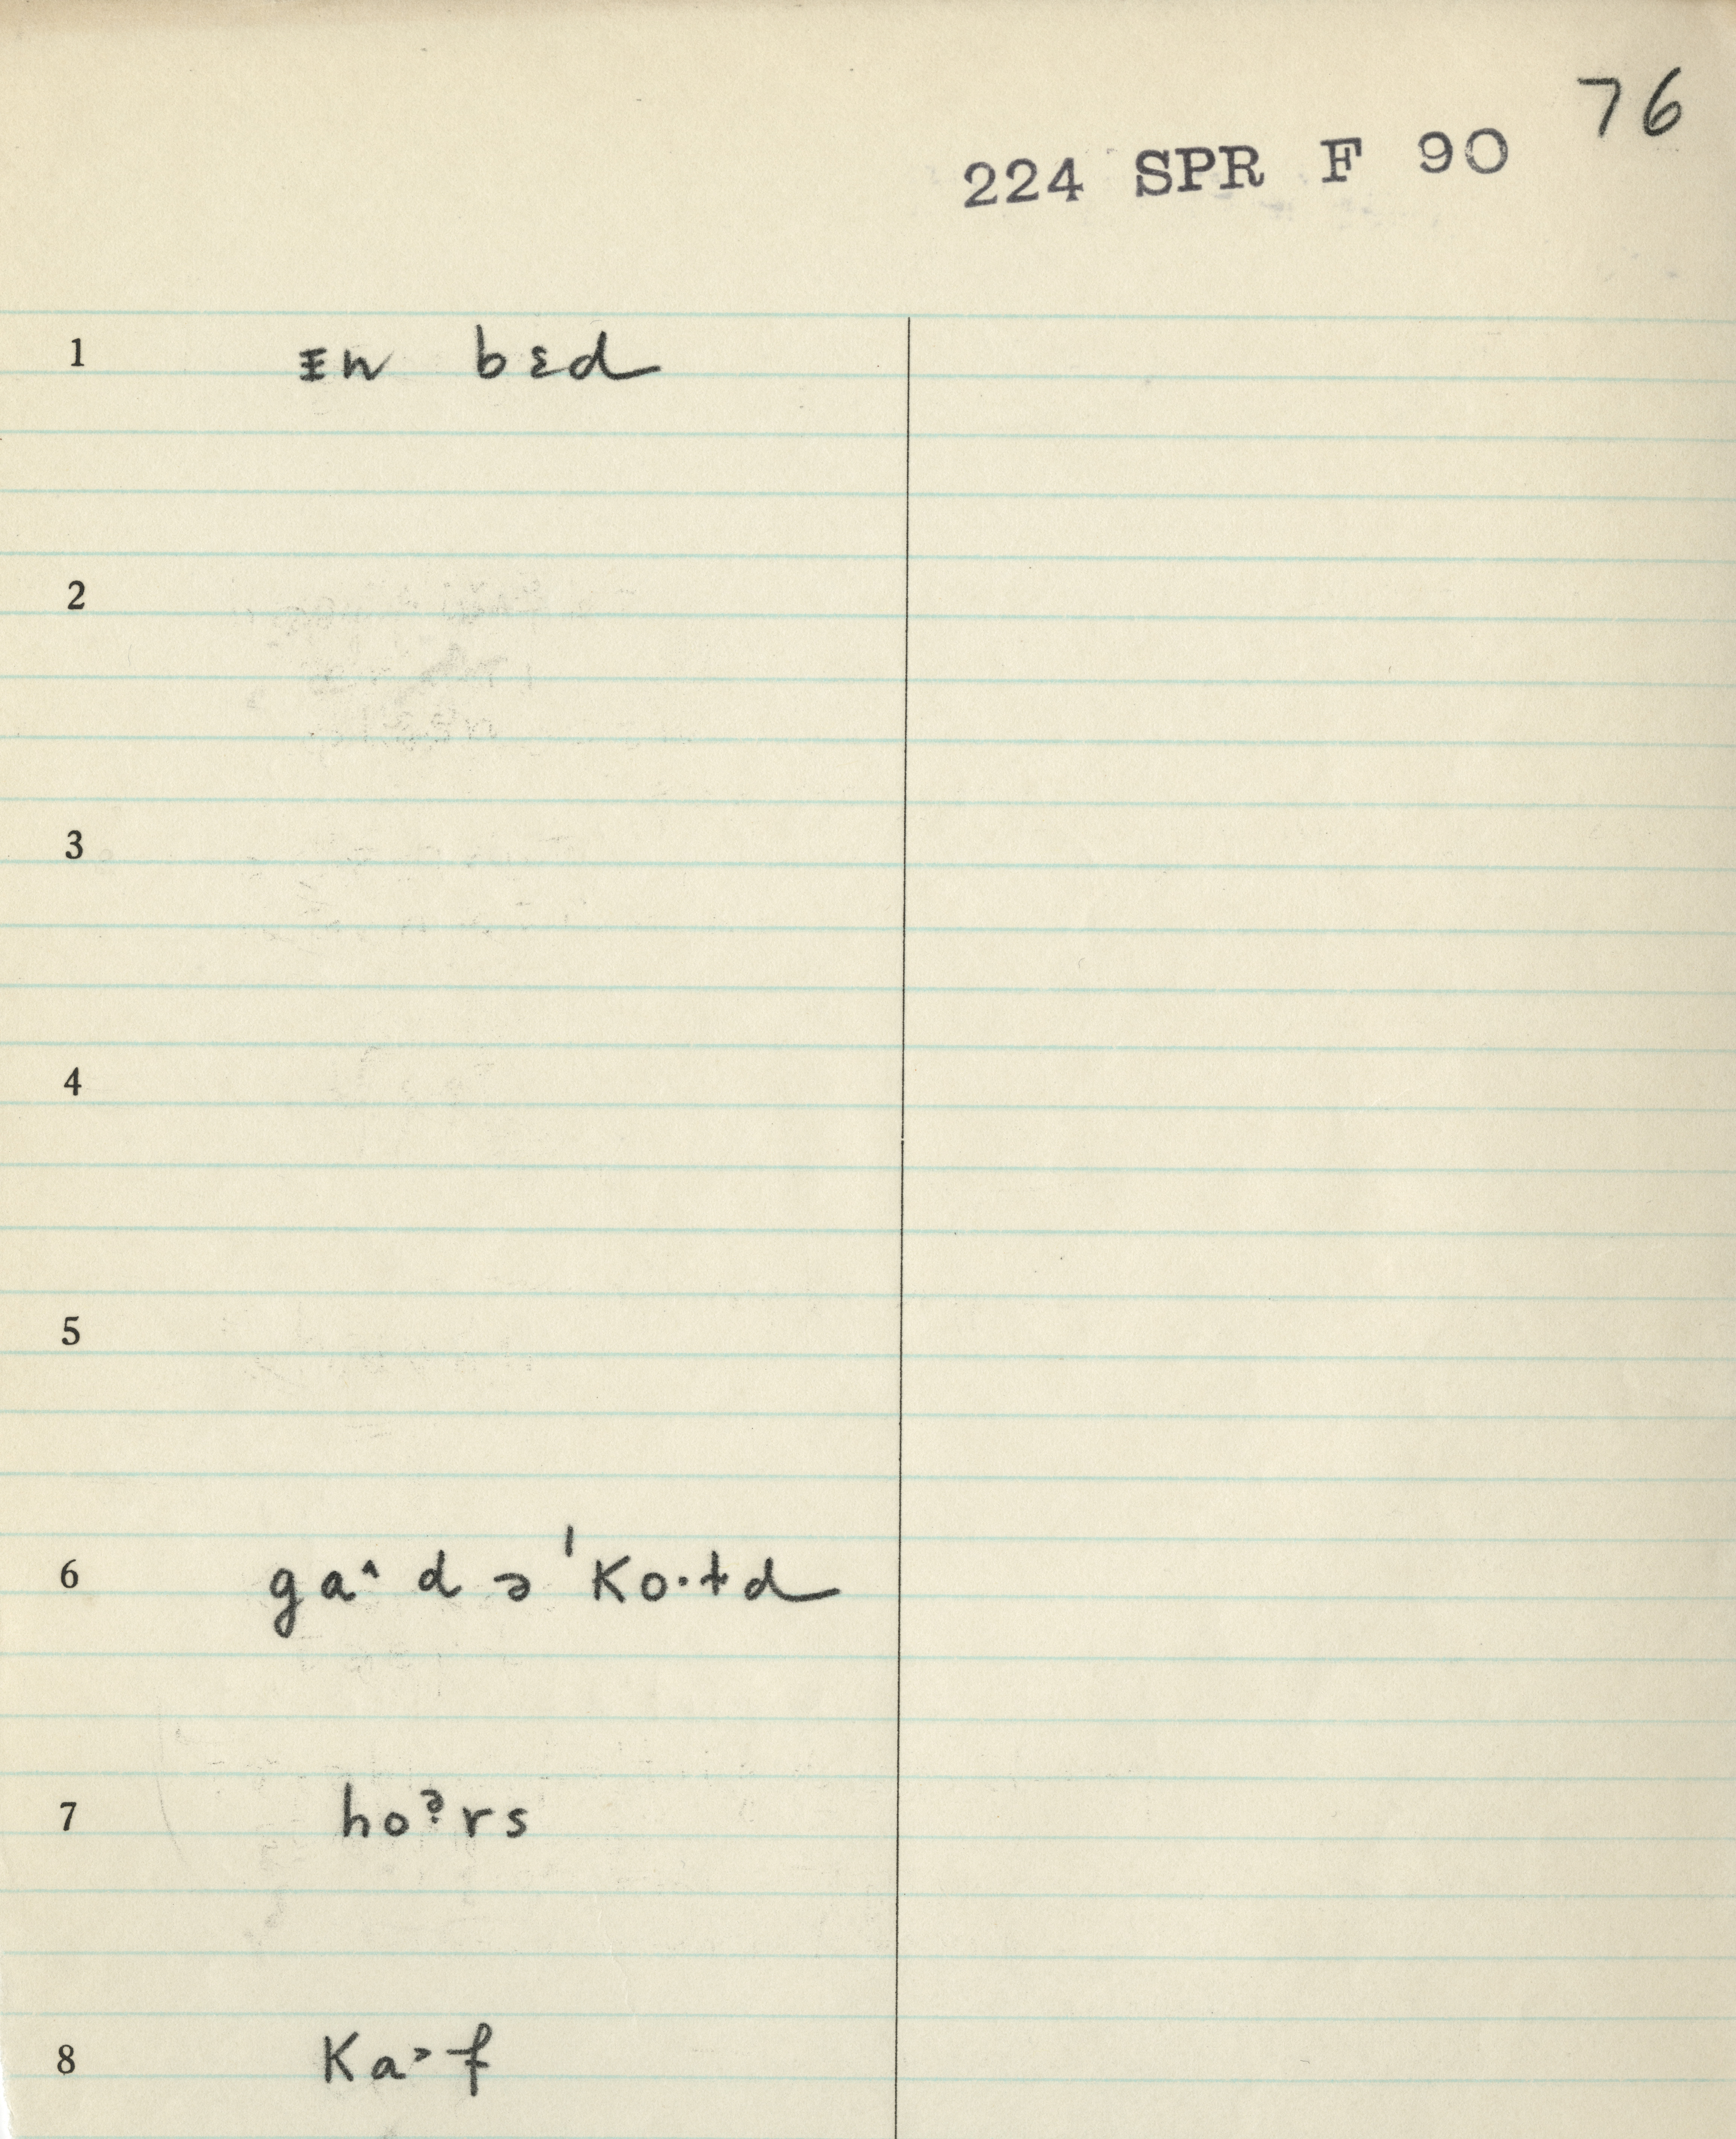 76
224 SPR F 90
1 ɪn bɛd
2
3
4
5
6 ga˄ d ə ˈko·td
7 hoˀrs
8 ka˃f